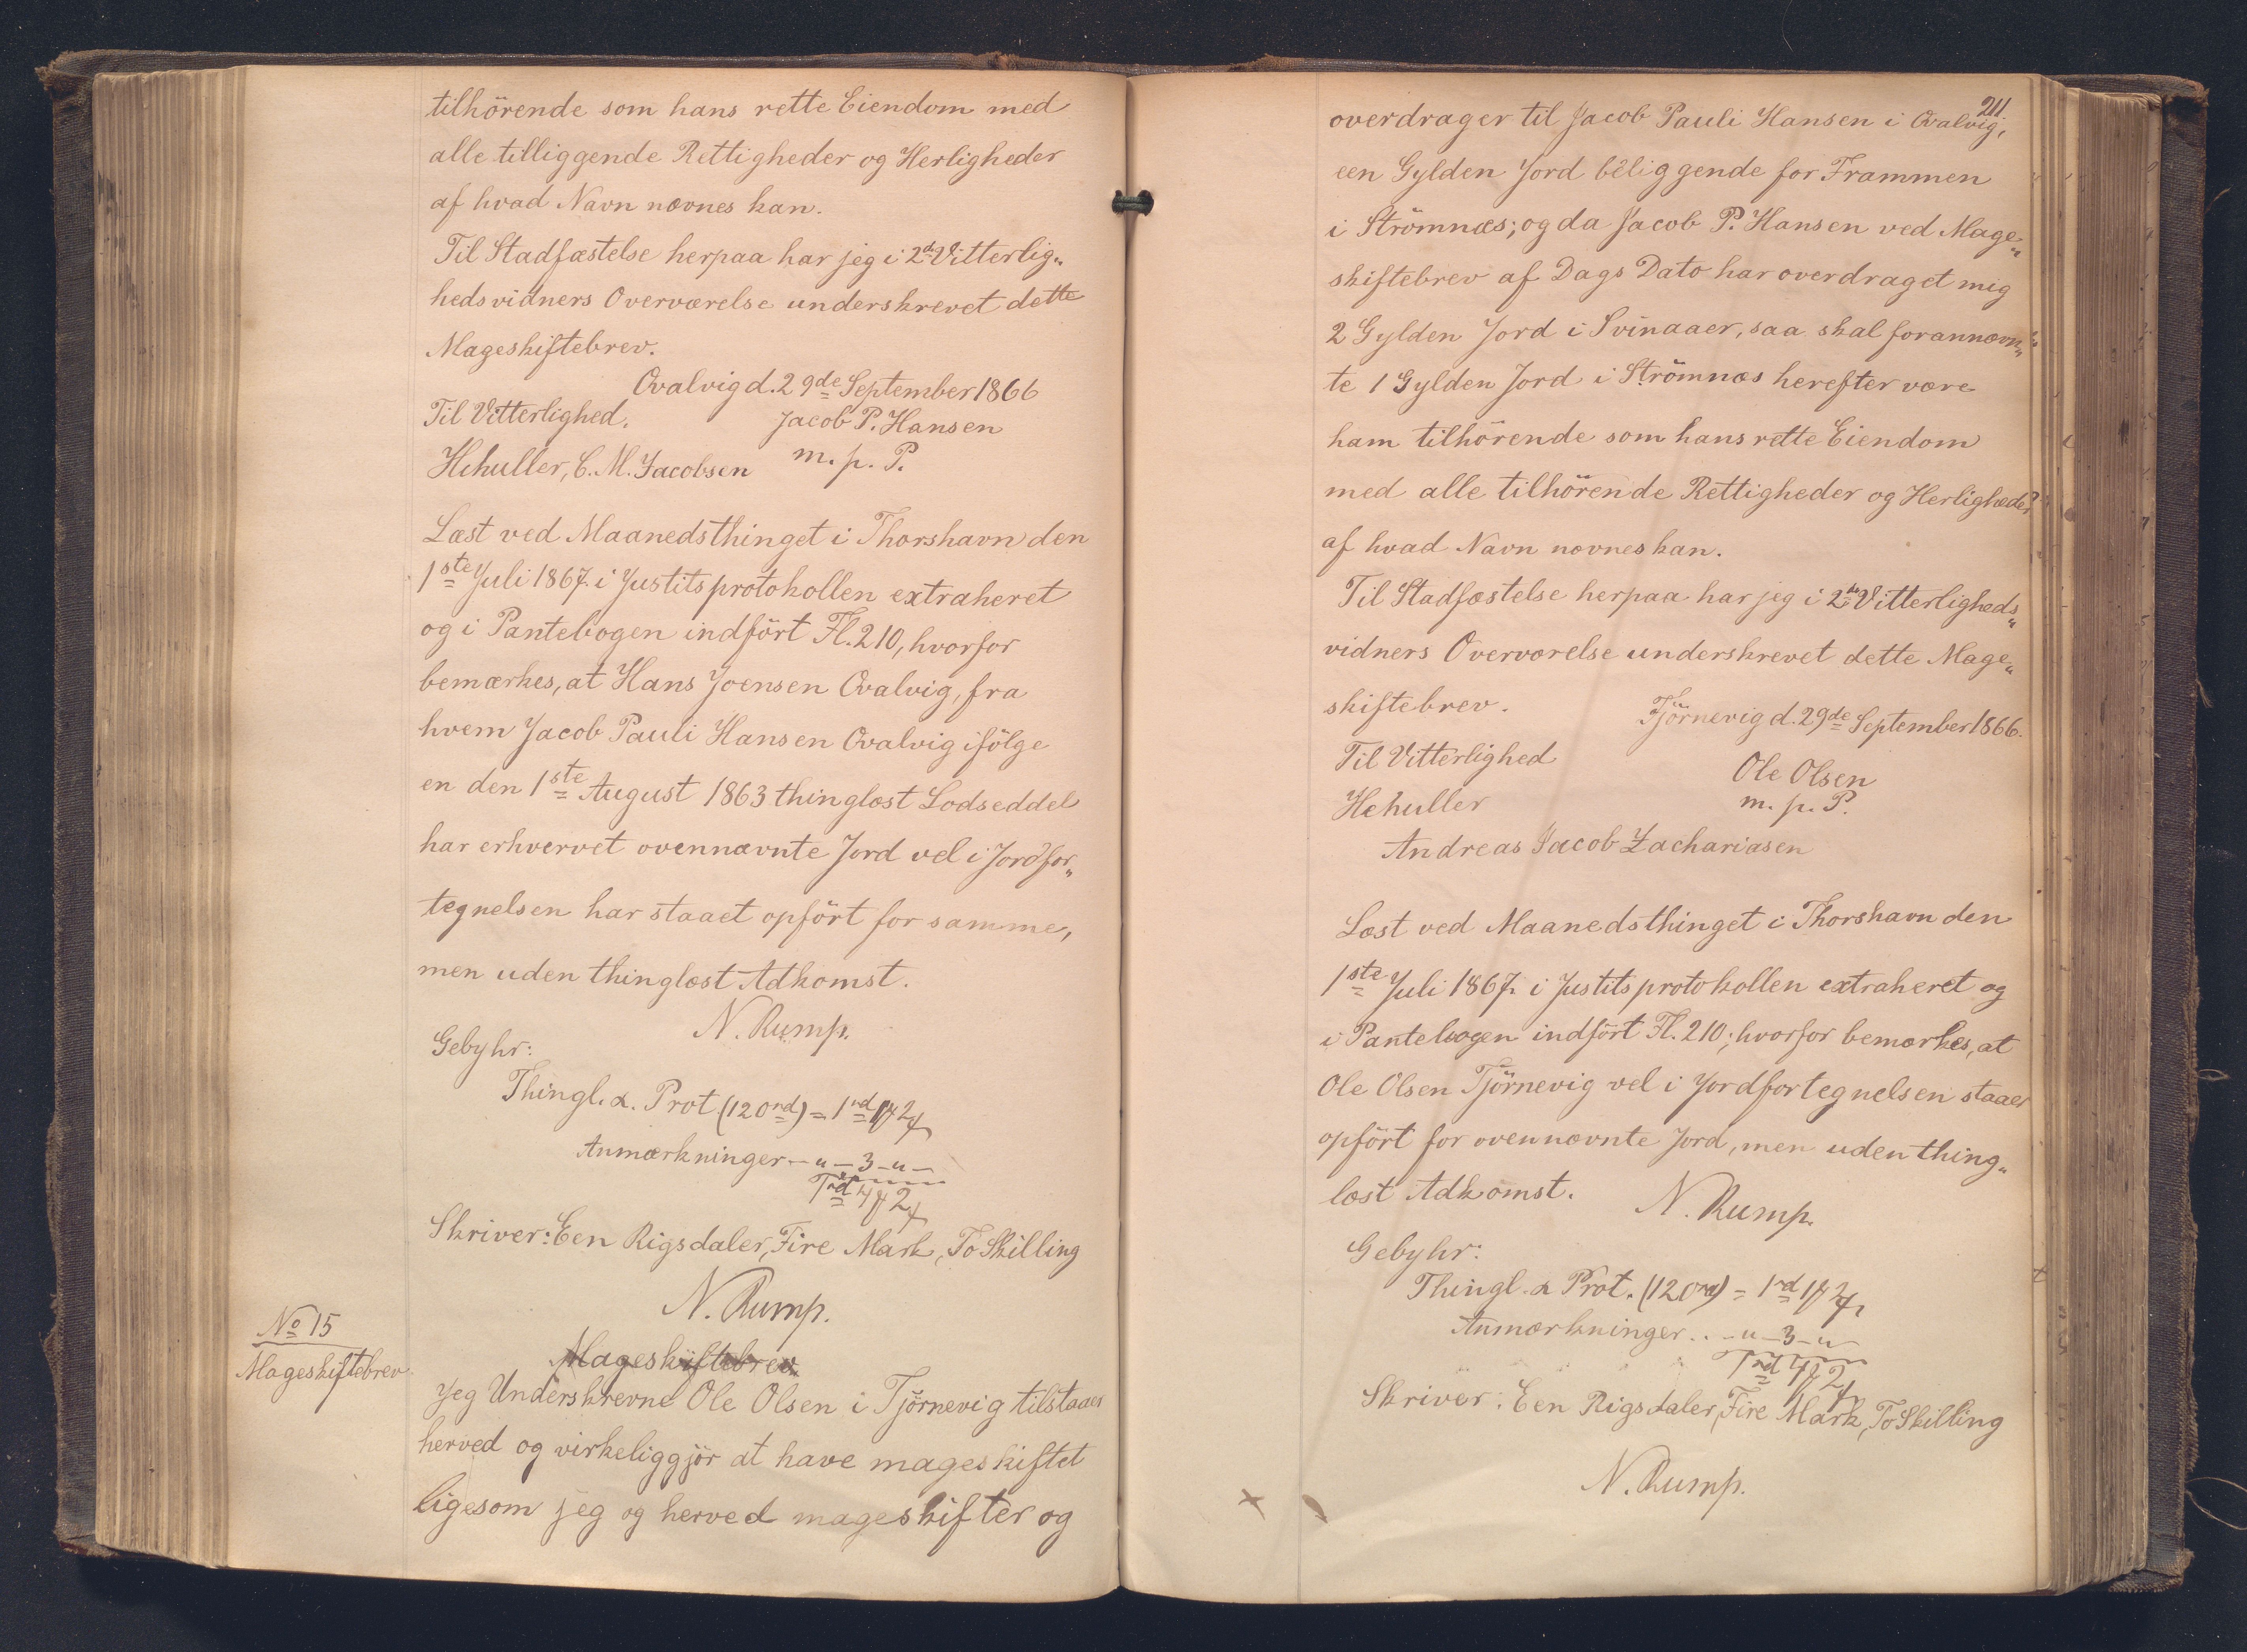 tilhörende som hans rette Eiendom med
alle tilliggende Rettigheder og Herligheder
af hvad Navn nævnes kan.
Til Stadfæstelse herpaa har jeg i 2de Vitterlig„
hedsvidners Overværelse underskrevet dette
Mageskiftebrev.
Qvalvig d. 29de September 1866
Til Vitterlighed. Jacob P. Hansen
C. M. Jacobsen m. p. P.
Læst ved Maanedsthinget i Thorshavn den
1ste Juli 1867. i Justitsprotokollen extraheret
og i Pantebogen indfört Fl. 210, hvorfor
bemærkes, at Hans Joensen Qvalvig, fra
hvem Jacob Pauli Hansen Qvalvig ifölge
en den 1ste August 1863 thinglæst Lodseddel
har erhvervet ovennævnte Jord vel i Jordfor„
tegnelsen har staaet opfört for samme,
men uden thinglæst Adkomst.
N. Rump.
Gebyhr:
Thingl. & Prot (120rd) = 1rd 1 ꝳ 2 ꝭ
Anmærkninger – „ – 3 – „ –
1rd 4 ꝳ 2 ꝭ
Skriver: Een Rigsdaler, Fire Mark, To Skilling
N. Rump.
No 15
Mageskiftebrev
Mageskiftebrev.
Jeg Underskrevne Ole Olsen i Tjörnevig tilstaaer
herved og virkeliggjör at have mageskiftet
ligesom jeg og herved mageskifter og
211
overdrager til Jacob Pauli Hansen i Qvalvig,
een Gylden Jord beliggende for Frammen
i Strömnæs; og da Jacob P. Hansen ved Mage„
skiftebrev af Dags Dato har overdraget mig
2 Gylden Jord i Svinaaer, saa skal forannævn„
te 1 Gylden Jord i Strömnæs herefter være
ham tilhörende som hans rette Eiendom
med alle tilhörende Rettigheder og Herligheder
af hvad Navn nævnes kan.
Til Stadfæstelse herpaa har jeg i 2de Vitterligheds„
vidners Overværelse underskrevet dette Mage„
skiftebrev. Tjörnevig d. 29de September 1866.
Til Vitterlighed Ole Olsen
m. p. P.
Andreas Jacob Zachariasen
Læst ved Maanedsthinget i Thorshavn den
1ste Juli 1867. i Justitsprotokollen extraheret og
i Pantebogen indfört Fl. 210; hvorfor bemærkes, at
Ole Olsen Tjörnevig vel i Jordfortegnelsen staaer
opfört for ovennævnte Jord, men uden thing„
læst Adkomst. N. Rump.
Gebyhr:
Thingl. & Prot. (120rd) = 1rd 1 ꝳ 2 ꝭ
Anmærkninger . . – „ – 3 – „ –
1rd 4 ꝳ 2 ꝭ
Skriver: Een Rigsdaler, Fire Mark, To Skilling
N. Rump.